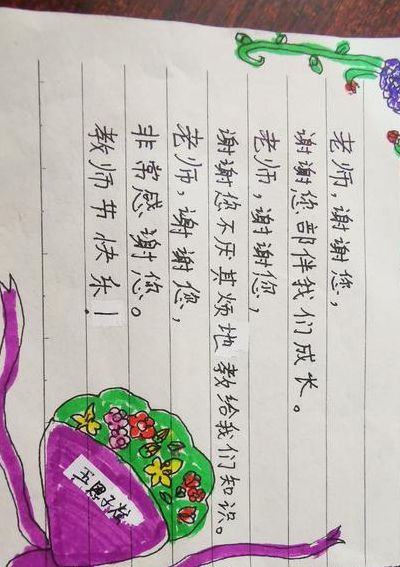 老师,谢谢您,
谢谢您部伴我们成长。
老师,谢谢您,
谢谢您不厌其烦地教给我们知识。
老师,谢谢您,
非常感谢您。
教师节快乐!